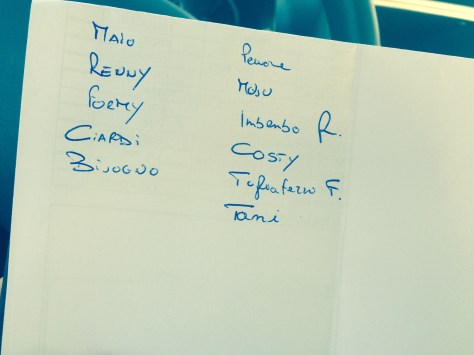 Maio
Renny
Formy
Ciardi
Bisogno
Penone
Mosu
Imbenbo R.
Costy
Tagliaferro F.
Tani